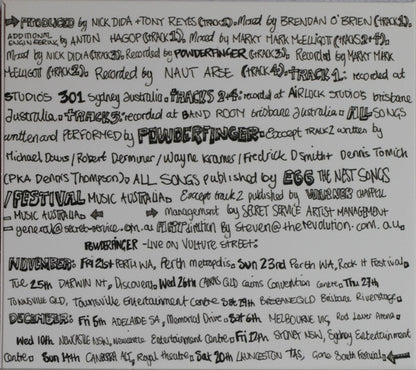 → PRODUCED by NICK DIDA + TONY REYES (TRACK1). Mixed by BRENDAN O'BRIEN (TRACK1).
ADDITIONAL ENGINEERING by ANTON HAGOP (TRACK 1). Mixed by MARKY MARK MELLIGOT (TRACKS 2+4).
Mixed by NICK DIDIA (TRACK3). Recorded by POWDERFINGER (TRACK3). Recorded by MARKY MARK
MELLIGOT (TRACK2). Recorded by NAUT ARSE (TRACK 4). TRACK 1: recorded at
STUDIOS 301 Sydney australia. TRACKS 2+4: recorded at AIRLOCK STUDIOS brisbane
australia. TRACK 3: recorded at BAND ROOM brisbane australia. ALL SONGS
written and PERFORMED by POWDERFINGER. Except TRACK 2 written by
Michael Davis / Robert Derminer / Wayne Kramer / Fredrick D Smith + Dennis Tomich
(PKA Dennis Thompson). ALL SONGS published by EGG THE NEST SONGS
/FESTIVAL MUSIC AUSTRALIA. Except track 2 published by WARNER CHAPPELL
MUSIC AUSTRALIA ← → management by SECRET SERVICE ARTIST MANAGEMENT
- general@secret-service.com.au by Steven@therevolution.com.au.
POWDERFINGER - LIVE ON VULTURE STREET:
NOVEMBER: Fri 21st PERTH WA, Perth metropolis. Sun 23rd PERTH WA, Rock It Festival
Tue 25th DARWIN NT, Discovery. Wed 26th CAIRNS QLD cairns Convention Centre. Thu 27th
TOWNSVILLE QLD, Townsville Entertainment Centre. Sat 29th BRISBANE QLD Brisbane Riverstage.
DECEMBER: Fri 5th ADELAIDE SA, Memorial Drive. Sat 6th MELBOURNE VIC, Rod Laver Arena.
Wed 10th NEWCASTLE NSW, Newcastle Entertainment Centre. Fri 12th SYDNEY NSW, Sydney Entertainment
Centre. Sun 14th CANBERRA ACT, Royal theatre. Sat 20th LAUNCESTON TAS, Gone South Festival. ←